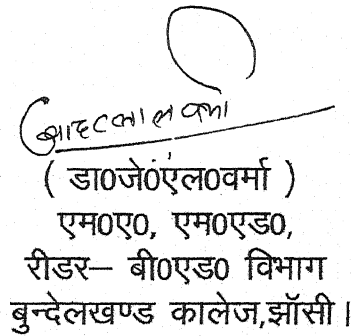 ( डा0जे0एल0वर्मा )
एम0ए0, एम0एड0,
रीडर– बी0एड0 विभाग
बुन्देलखण्ड कालेज,झॉसी।